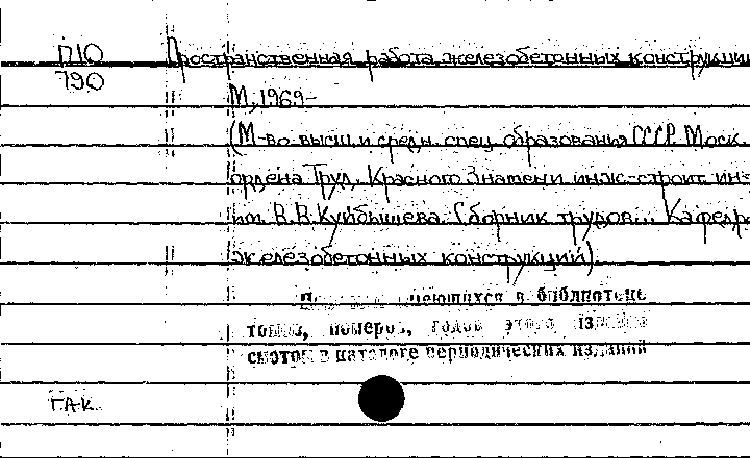 П10
790
Пространственная работа железобетонных конструкций
М, 1969-
(М-во высш. и средн. спец. образования СССР. Моск.
ордена Труд. Красного Знамени инж.-строит. ин-
им. В.В. Куйбышева. Сборник трудов... Кафедра
железобетонных конструкций).
имеющихся в библиотеке
томов, номеров, годов этого издания
смотри в каталоге периодических изданий
ГАК